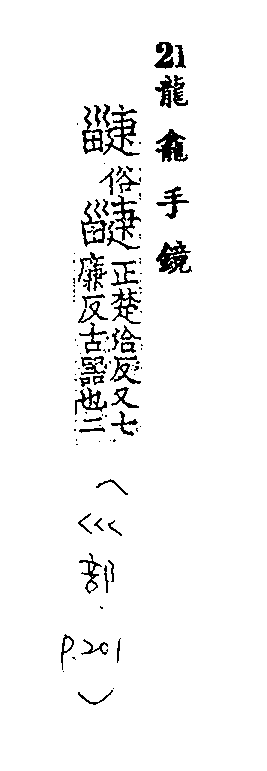 21龍龕手鏡
俗疀正楚洽反又七
廉反古器也二
(巛部.P.201)